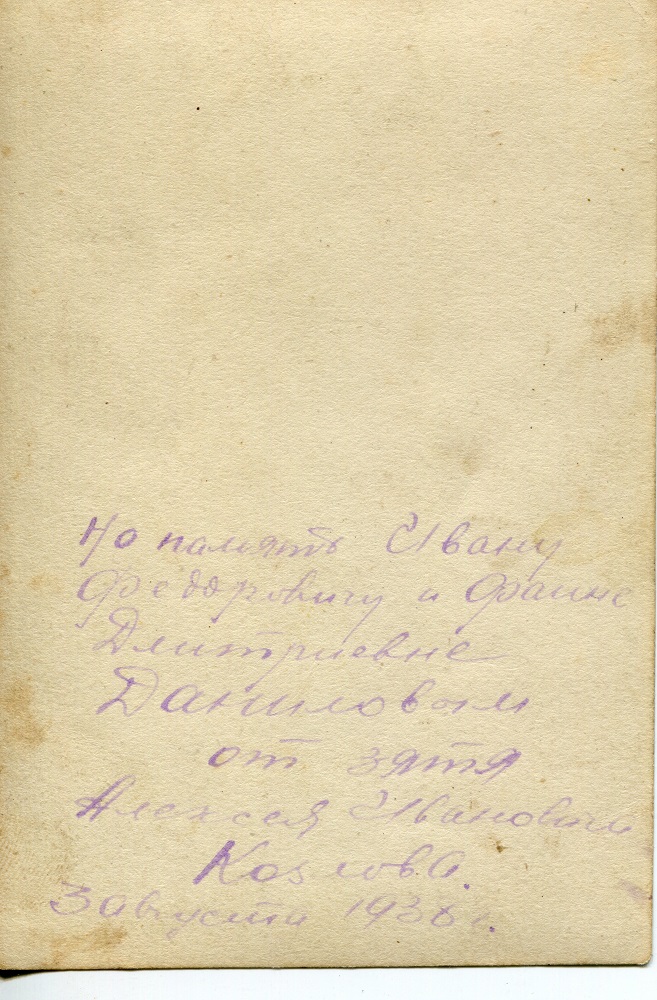 На память Ивану
Федоровичу и Фаине
Дмитриевне
Даниловым
от зятя
Алексея Ивановича
Козлова.
3 августа 1936 г.